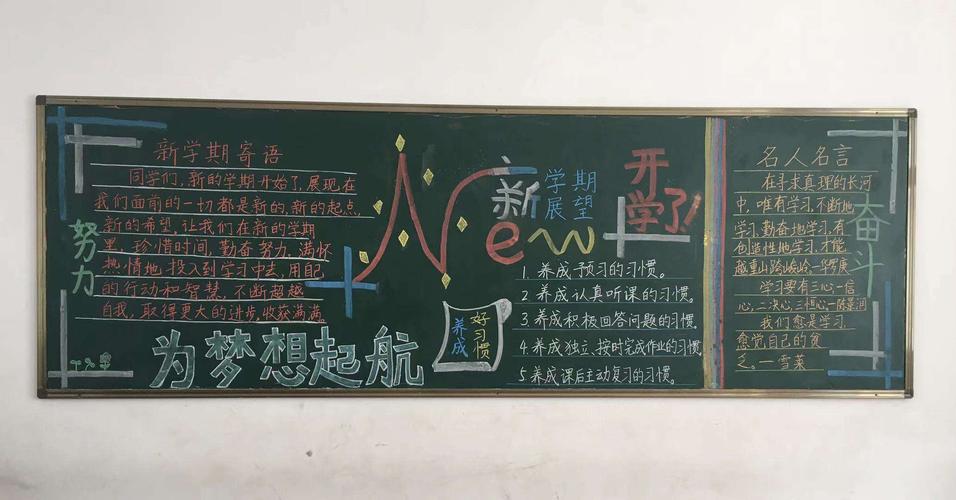 新学期寄语
同学们，新的学期开始了，展现在
我们面前的一切都是新的，新的起点，
新的希望，让我们在新的学期
里，珍惜时间，勤奋努力，满怀
热情地投入到学习中去，用自己
的行动和智慧，不断超越
自我，取得更大的进步，收获满满。
努力
为梦想起航
New
新学期
展望
开学了！
养成
好习惯
1. 养成预习的习惯。
2. 养成认真听课的习惯。
3. 养成积极回答问题的习惯。
4. 养成独立、按时完成作业的习惯
5. 养成课后主动复习的习惯。
名人名言
在寻求真理的长河
中，唯有学习，不断地
学习，勤奋地学习，有
创造性地学习，才能
越重山跨峻岭。—华罗庚
学习要有三心：一信
心，二决心，三恒心—陈景润
我们愈是学习，
愈觉自己的贫
乏。—雪莱
奋斗